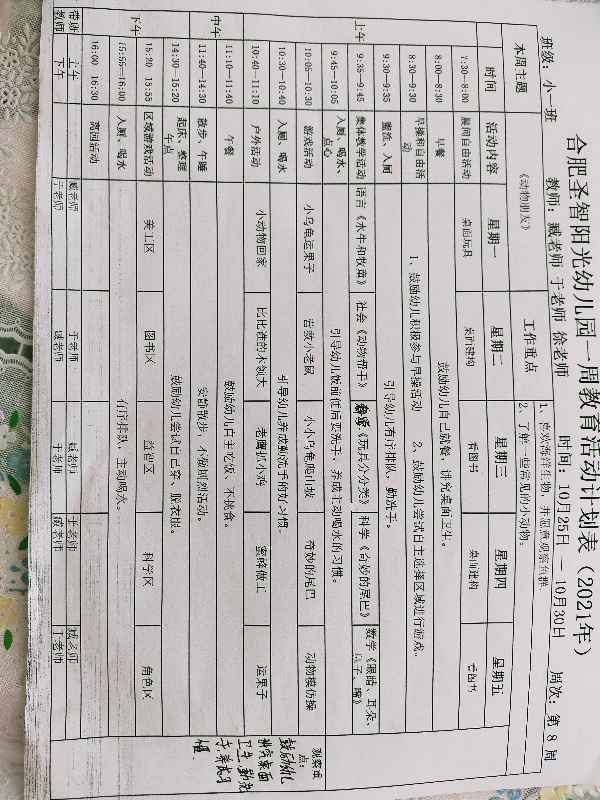 合肥圣智阳光幼儿园一周教育活动计划表（2021年）
班级：小一班 教师：臧老师 于老师 徐老师 时间：10月25日 — 10月30日 周次：第 8 周
本周主题 《动物朋友》 工作重点 1、喜欢海洋生物，并愿意观察
2、了解一些常见的小动物。
时间 活动内容 星期一 星期二 星期三 星期四 星期五
上午
7:30—8:00 晨间自由活动 桌面玩具 桌面建构 看图书 桌面建构 看图书
8:00—8:30 早餐 鼓励幼儿自己就餐，讲究桌面卫生。
8:30—9:30 早操和自由活动 1、鼓励幼儿积极参与早操活动 2、鼓励幼儿尝试自主选择区域进行游戏。
9:30—9:35 盥洗、入厕 引导幼儿有序排队，勤洗手。
9:35—9:45 集体教学活动 语言《水牛和牧童》 社会《动物帮手》 《玩具分分类》 科学《奇妙的尾巴》 数学《眼睛、耳朵、鼻子、嘴》
9:45—10:05 入厕、喝水、点心 引导幼儿饭前便后要洗手，养成主动喝水的习惯。
10:05—10:30 游戏活动 小乌龟运果子 营救小老鼠 小小乌龟爬山坡 奇妙的尾巴 动物模仿操 观察重点：
10:30—10:40 入厕、喝水 引导幼儿养成勤洗手的好习惯。 鼓励幼儿
10:40—11:10 户外活动 小动物回家 比比谁的本领大 老鹰抓小鸡 蜜蜂做工 运果子 讲究桌面卫生，勤洗手，养成习惯
中午
11:10—11:40 午餐 鼓励幼儿自主吃饭、不挑食。
11:40—14:30 散步、午睡 安静散步，不做剧烈活动。
下午
14:30—15:20 起床、整理、午点 鼓励幼儿尝试自己穿、脱衣服。
15:20 15:55 区域游戏活动 美工区 图书区 益智区 科学区 角色区
15:55—16:00 入厕、喝水 有序排队，主动喝水。
16:00 16:30 离园活动
带班教师 上午 臧老师 于老师 臧老师 于老师 臧老师
下午 于老师 臧老师 于老师 臧老师 于老师